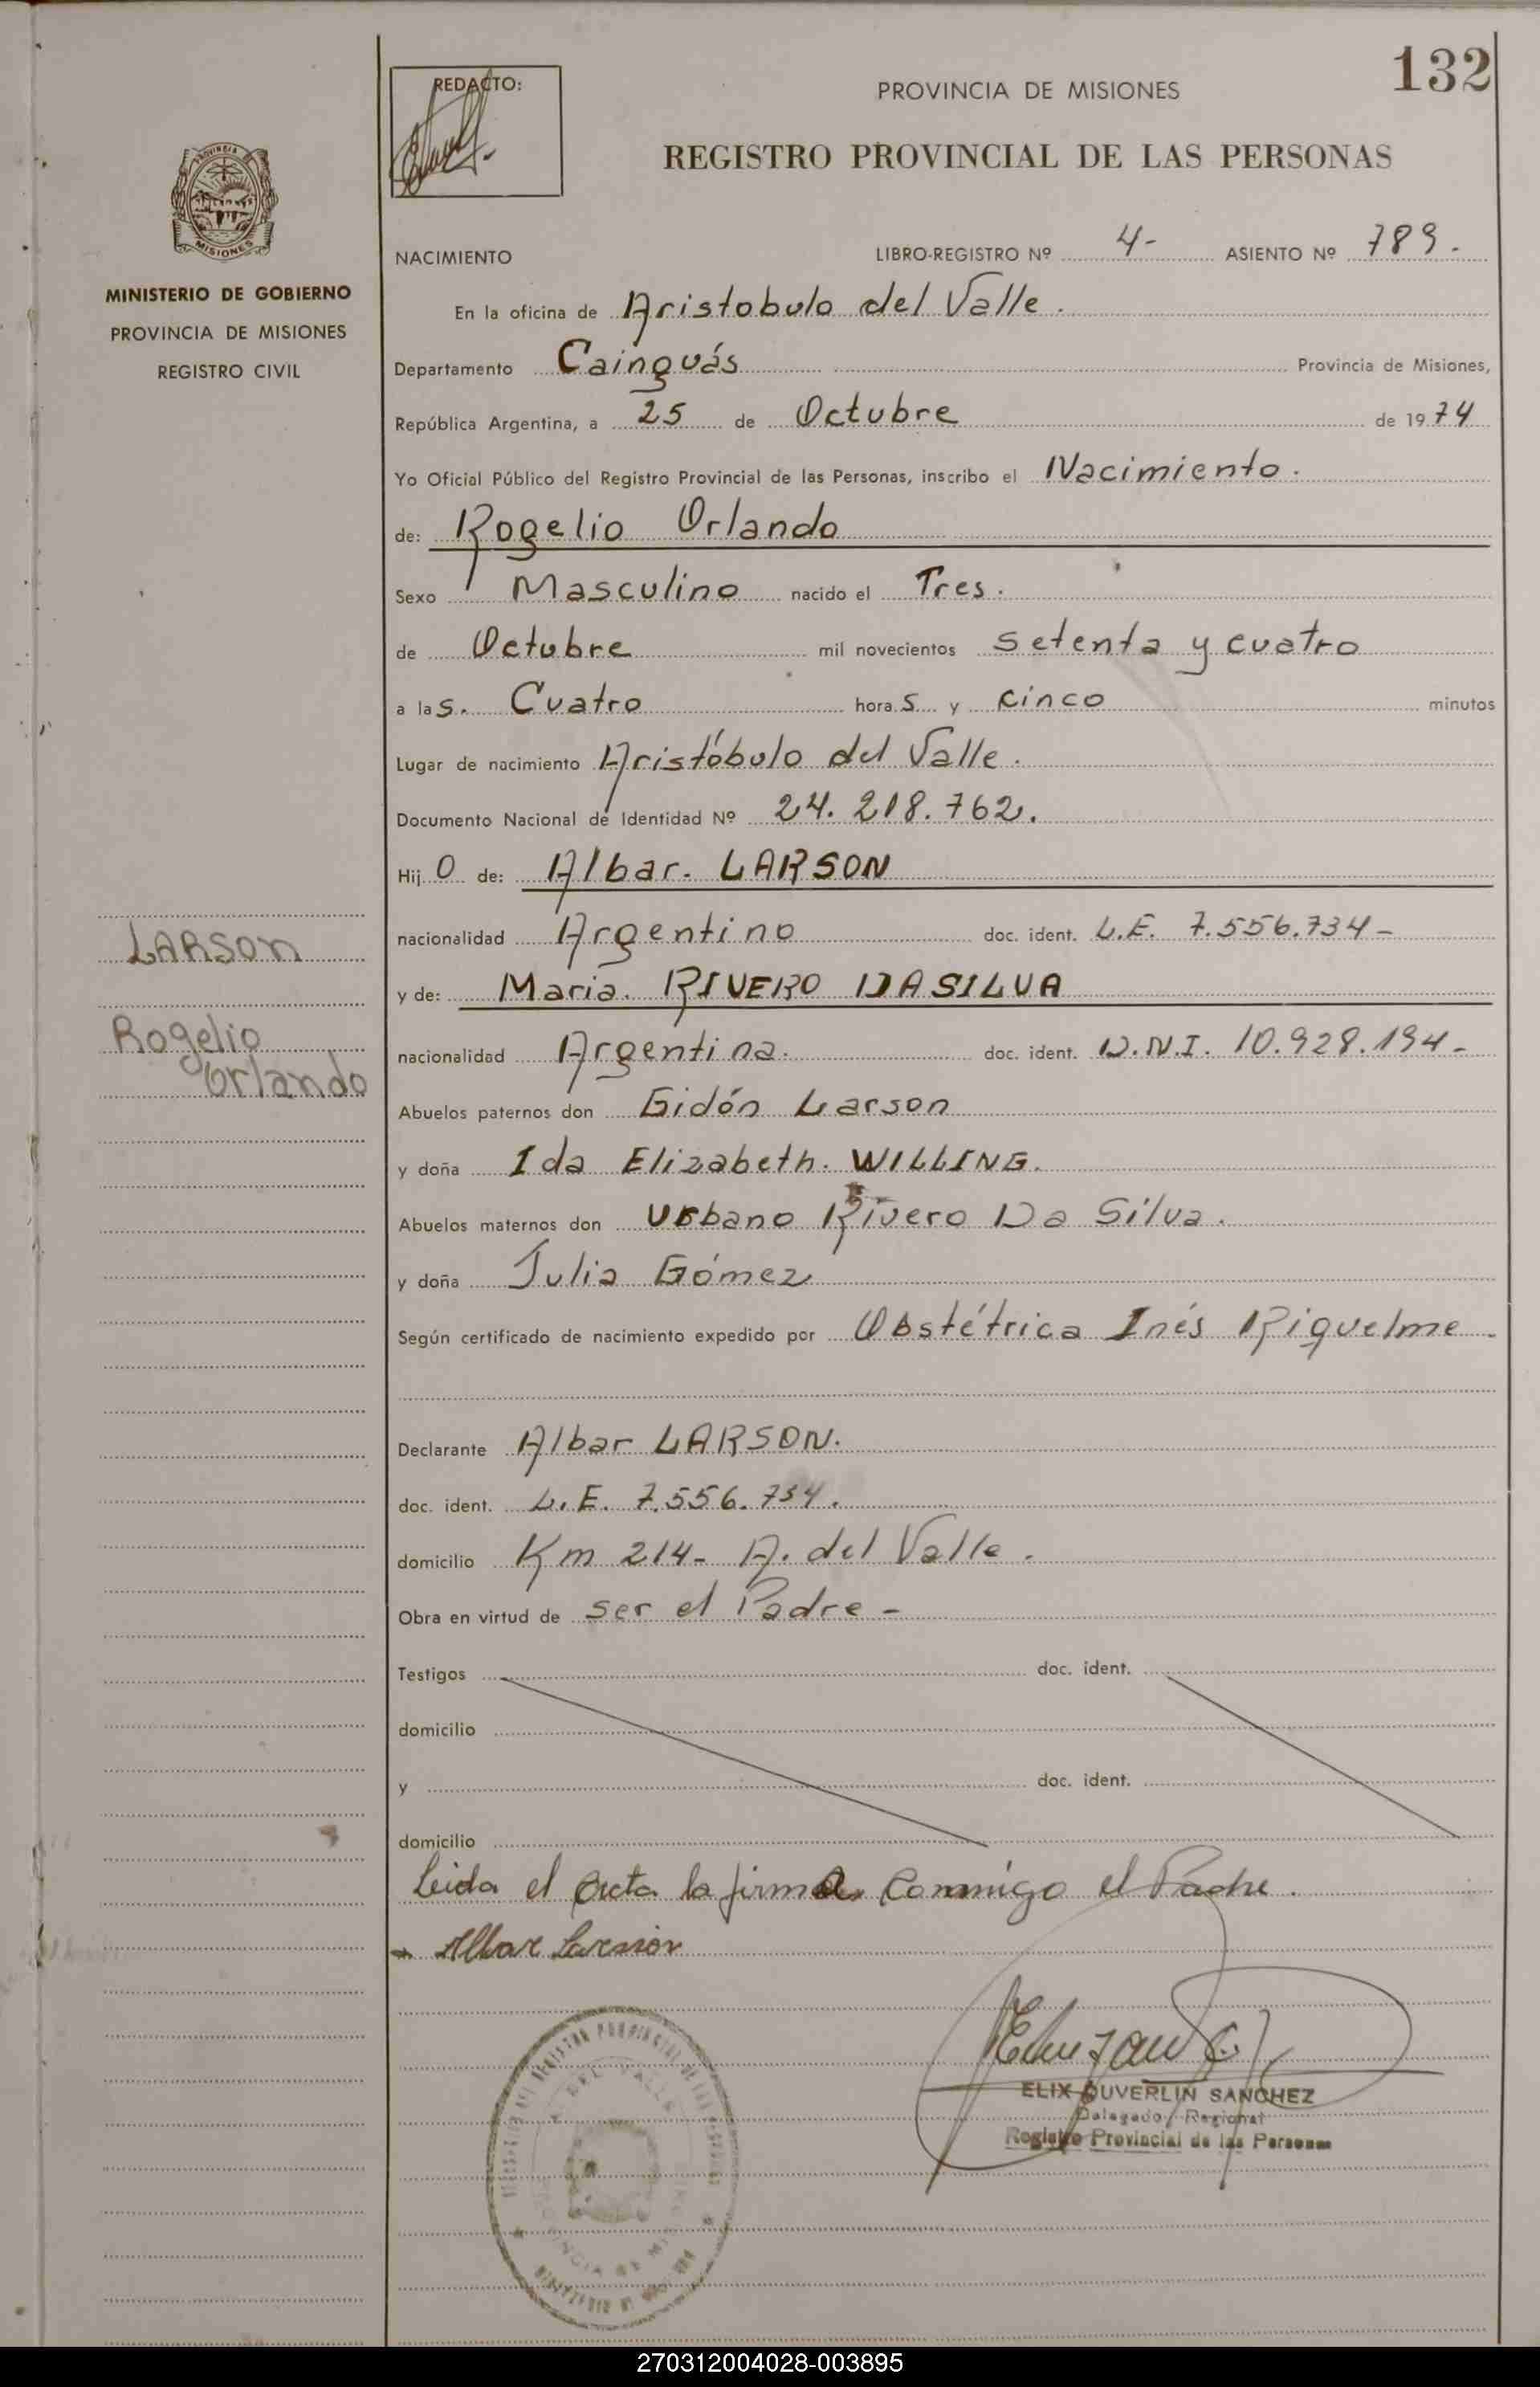 132
REDACTO:
PROVINCIA DE MISIONES
REGISTRO PROVINCIAL DE LAS PERSONAS
MISIONES
MINISTERIO DE GOBIERNO
PROVINCIA DE MISIONES
REGISTRO CIVIL
LARSON
Rogelio
Orlando
NACIMIENTO LIBRO-REGISTRO Nº 4- ASIENTO Nº 789.
En la oficina de Aristobulo del Valle.
Departamento Cainguás Provincia de Misiones,
República Argentina, a 25 de Octubre de 1974
Yo Oficial Público del Registro Provincial de las Personas, inscribo el Nacimiento.
de: Rogelio Orlando
Sexo Masculino nacido el Tres.
de Octubre mil novecientos setenta y cuatro
a las. Cuatro horas y cinco minutos
Lugar de nacimiento Aristóbulo del Valle.
Documento Nacional de Identidad Nº 24.218.762.
Hijo de: Albar. LARSON
nacionalidad Argentino doc. ident. L.E. 7.556.734-
y de: Maria. RIVERO DASILVA
nacionalidad Argentina. doc. ident. D.N.I. 10.928.194-
Abuelos paternos don Gidón Larson
y doña Ida Elizabeth. WILLING.
Abuelos maternos don Urbano Rivero Da Silva.
y doña Julia Gómez
Según certificado de nacimiento expedido por Obstétrica Inés Riquelme
Declarante Albar LARSON.
doc. ident. L.E. 7.556.734.
domicilio Km 214- A. del Valle.
Obra en virtud de ser el Padre-
Testigos doc. ident.
domicilio
y doc. ident.
domicilio
Leida el acta la firma conmigo el Padre.
Albar Larson
ELIX DUVERLIN SANCHEZ
Delegado Regional
Registro Provincial de las Personas
270312004028-003895